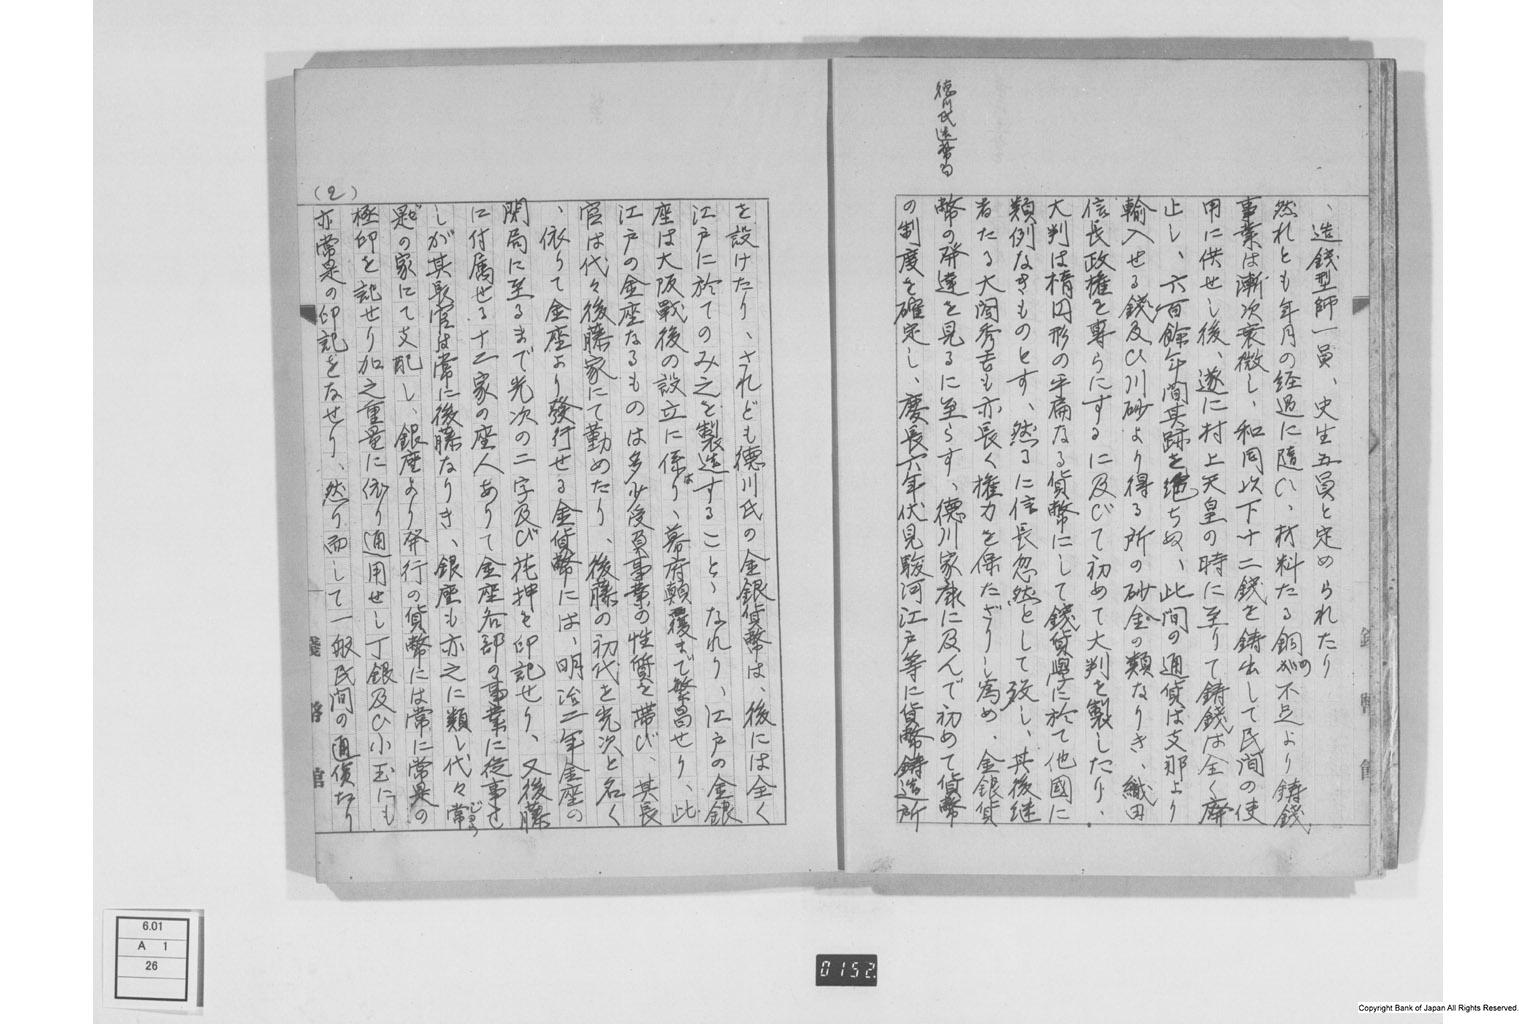 徳川氏造幣局
、造錢型師一員、史生五員と定められたり
然れとも年月の経過に随い、材料たる銅の不足より鋳錢
事業は漸次衰微し、和同以下十二錢を鋳出して民間の使
用に供せし後、遂に村上天皇の時に至りて鋳錢は全く廃
止し、六百餘年間其跡を絶ちぬ、此間の通貨は支那より
輸入せる錢及ひ川砂より得る所の砂金の類なりき、織田
信長政権を専らにするに及びて初めて大判を製したり、
大判は楕円形の平扁なる貨幣にして錢貨學に於て他國に
類例なきものとす、然るに信長忽然として歿し、其後継
者たる大閤秀吉も亦長く権力を保たざりし爲め、金銀貨
幣の発達を見るに至らす、徳川家康に及んで初めて貨幣
の制度を確定し、慶長六年伏見駿河江戸等に貨幣鋳造所
を設けたり、されども徳川氏の金銀貨幣は、後には全く
江戸に於てのみ之を製造することゝなれり、江戸の金銀
座は大阪戰後の設立に係り、幕府顛覆まで繁昌せり、此
江戸の金座なるものは多少受負事業の性質を帯び、其長
官は代々後藤家にて勤めたり、後藤の初代を光次と名く
、依りて金座より發行せる金貨幣には、明治二年金座の
閉局に至るまで光次の二字及び花押を印記せり、又後藤
に付属せる十二家の座人ありて金座各部の事業に従事せ
しが其長官は常に後藤なりき、銀座も亦之に類し代々常
是の家にて支配し、銀座より発行の貨幣には常に常是の
極印を記せり加之重量に依り通用せし丁銀及ひ小玉にも
亦常是の印記をなせり、然り而して一般民間の通貨なり
(2)
錢幣館
錢幣館
6.01
A 1
26
0152
Copyright Bank of Japan All Rights Reserved.